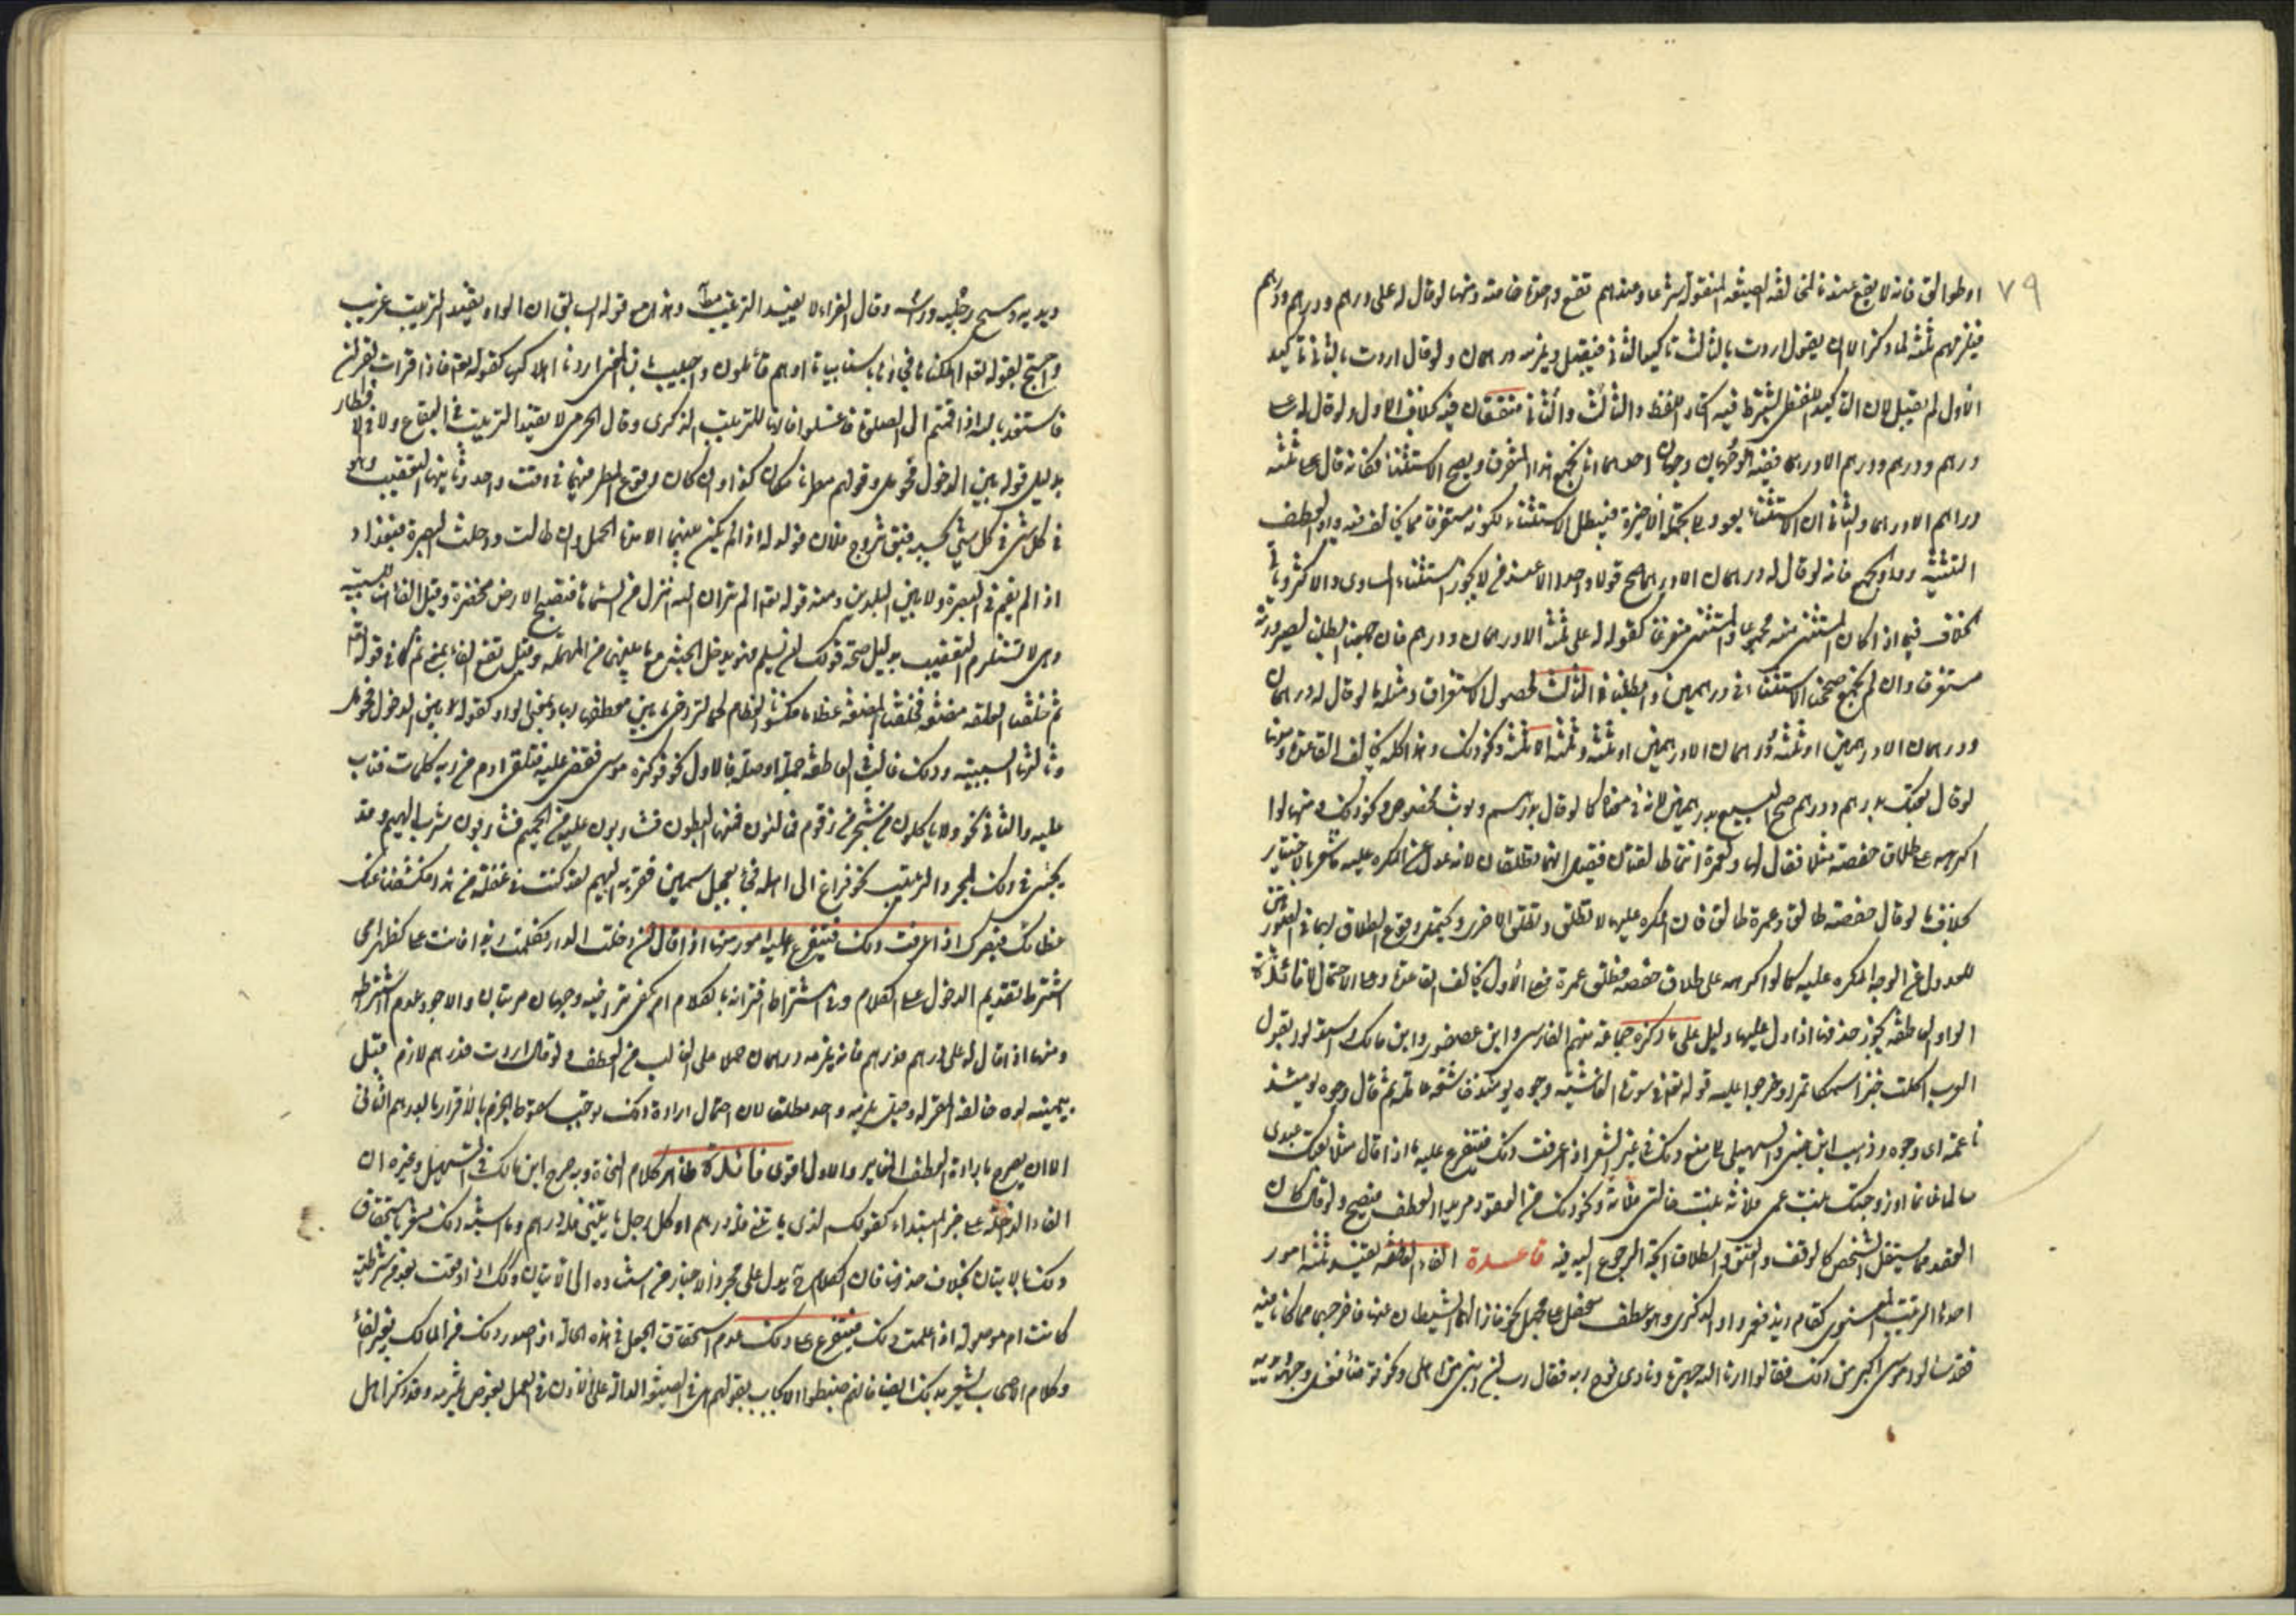 ٧٩
او طوالق فانه لا يقع عندنا لمخالفة الصيغة المنقولة شرعا وعندهم تقع واحدة خاصة ومنها لو قال له على درهم ودرهم ودرهم
فيلزمهم ثلثة لما ذكر الا ان يقول اردت بالثالث تاكيد الثانى فيقبل ويلزمه درهمان ولو قال اردت بالثانى تاكيد
الاول لم يقبل لان التاكيد اللفظى يشترط فيه اتحاد اللفظ والثالث والثانى متفقان فيه بخلاف الاول ولو قال له على
درهم ودرهم ودرهم الا درهما ففيه وجهان احدهما انا نجمع هذا المتفرق ويصح الاستثناء فكانه قال على ثلثة
دراهم الا درهما والثانى ان الاستثناء يعود الى الجملة الاخيرة فيبطل الاستثناء لكونه مستغرقا مما يخالف فيه واو العطف
التثنية وواو الجمع فانه لو قال له درهمان الا درهما صح قولا واحدا الا عند من لا يجوز استثناء المساوى والاكثر وياتى
الخلاف فيما اذا كان المستثنى منه مجموعا والمستثنى متفرقا كقوله له على ثلثة الا درهمان ودرهم فان جمعنا ابطلنا لصيرورته
مستغرقا وان لم نجمع صححنا الاستثناء فى درهمين وابطلناه فى الثالث لحصول الاستغراق ومثله ما لو قال له درهمان
ودرهمان الا درهمين او ثلثة ودرهمان الا درهمين او ثلثة وثلثة الا ثلثة ونحو ذلك وهذا كله يخالف القاعدة ومنها
لو قال بعتك بدرهم ودرهم صح البيع بدرهمين لانه فى معناه كما لو قال بدرهم وثوب مخصوص ونحو ذلك ومنها لو
اكرهه على طلاق حفصة مثلا فقال لها ولعمرة انتما طالقتان فقيل انهما تطلقان لانه عدل عن المكره عليه فاشعر بالاختيار
بخلاف ما لو قال حفصة طالق وعمرة طالق فان المكره عليها لا تطلق وتطلق الاخرى ويحتمل وقوع الطلاق بهما فى الصورتين
للعدول عن الوجه المكره عليه كما لو اكرهه على طلاق حفصة فطلق عمرة فعلى الأول يخالف القاعدة وعلى الاحتمال لا فائدة
الواو العاطفة يجوز حذفها اذا دل عليها دليل على ما ذكره جماعة منهم الفارسى وابن عصفور وابن مالك واسمعوا لو يقول
العرب اكلت خبزا سمكا تمرا وخرجوا عليه قوله تعالى فى سورة الغاشية وجوه يومئذ خاشعة ثم قال وجوه يومئذ
ناعمة اى ووجوه وذهب ابن جنى والسهيلى الى منع ذلك فى غير الشعر اذا عرفت ذلك فيتفرع عليه ما اذا قال مثلا بعتك عبدى
سالما غانما او زوجتك بنت عمى فلانة بنت خالتى فلانة ونحو ذلك من العقود مريدا العطف فيصح ولو قال كان
العقد مما يستقل به الشخص كالوقف والعتق والطلاق اتجه الرجوع اليه فيه قاعدة الفاء العاطفة يفيد ثلثة امور
احدها الترتيب المعنوى كقام زيد فعمرو او الذكرى وهو عطف مفصل على مجمل نحو فازلهما الشيطان عنها فاخرجهما مما كانا فيه
فقد سالوا موسى اكبر من ذلك فقالوا ارنا الله جهرة ونادى نوح ربه فقال رب ان ابنى من اهلى ونحو توضأ فغسل وجهه
ويديه ومسح رجليه وراسه وقال الفراء لا يفيد الترتيب مطلقا وهذا مع قوله السابق ان الواو يفيد الترتيب غريب
واحتج بقوله تعالى اهلكناها فجاءها باسنا بياتا او هم قائلون واجيب بان المعنى اردنا اهلاكها كقوله تعالى فاذا قرات القران
فاستعذ بالله اذا قمتم الى الصلوة فاغسلوا فانها للترتيب الذكرى وقال الجرمى لا يفيد الترتيب فى البقاع ولا فى الامطار
بدليل قوله بين الدخول فحومل وقولهم مطرنا مكان كذا وان كان وقوع المطر فيهما فى وقت واحد وثانيها التعقيب وهو
فى كل شئ بحسبه فيقال تزوج فلان فولد له اذا لم يكن بينهما الا مدة الحمل وان طالت ودخلت البصرة فبغداد
اذا لم يقم فى البصرة ولا بين البلدين ومنه قوله تعالى الم تر ان الله انزل من السماء ماء فتصبح الارض مخضرة وقيل الفاء هنا للسببية
وهى لا تستلزم التعقيب بدليل صحة قولك ان يسلم فهو يدخل الجنة مع ما بينهما من المهلة وقيل تقع الفاء بمعنى ثم كما فى قوله تعالى
ثم خلقنا العلقة مضغة فخلقنا المضغة عظاما فكسونا العظام لحما لتراخى ما بين معطوفاتها وبمعنى الواو كقوله بين الدخول فحومل
وثالثها السببية وذلك غالب فى العاطفة جملة او صفة فالاول نحو فوكزه موسى فقضى عليه فتلقى ادم من ربه كلمات فتاب
عليه والثانى نحو لاكلون من شجر من زقوم فمالئون منها البطون فشاربون عليه من الحميم فشاربون شرب الهيم وقد
يجئ فى ذلك لمجرد الترتيب نحو فراغ الى اهله فجاء بعجل سمين فقربه اليهم لقد كنت فى غفلة من هذا فكشفنا عنك
غطائك فبصرك اذا عرفت ذلك فيتفرع عليه امور منها اذا قال ان دخلت الدار فكلمت زيدا فانت على كظهر امى
اشترط تقديم الدخول على الكلام وفى اشتراط اقترانه بالكلام ام يكفى تراخيه وجهان مرتبان والاجود عدم اشتراط
ومنها اذا قال له على درهم فدرهم فانه يلزمه درهمان حملا على الغالب من العطف ولو قال اردت فدرهم لازم قبل
بيمينه لو خالفه المقر له وقيل يلزمه واحد مطلقا لان احتمال ارادة ذلك يوجب سقوط الجزم بالاقرار بالدرهم الثانى
الا ان يصرح بارادة العطف المغاير والاول اقوى فائدة ظاهر كلام النحاة وبه صرح ابن مالك فى التسهيل وغيره ان
الفاء الداخلة على خبر المبتداء كقولك الذى ياتينى فله درهم او كل رجل ياتينى فله درهم وما اشبه ذلك مشعر باستحقاق
ذلك بالاتيان بخلاف حذفها فان الكلام ح يدل على مجرد الاخبار من استناده الى الاتيان وذلك اذا وقعت بعد من شرطية
كانت ام موصولة اذا علمت ذلك فيتفرع على ذلك عدم استحقاق الجعل فى هذه الحالة اذا صدر ذلك من المالك بغير الفاء
وكلام الاصحاب يشعر بذلك ايضا فانهم ضبطوا الايجاب بقولهم هى الصيغة الدالة على الاذن فى العمل بعوض يلتزمه وقد ذكر اهل